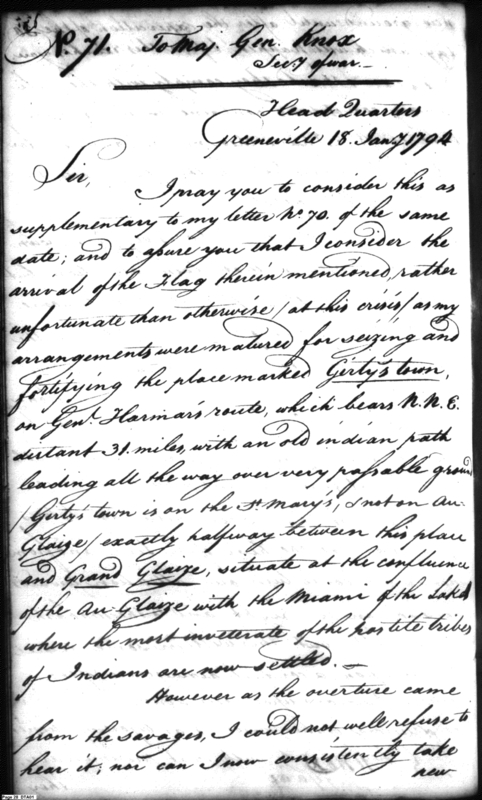 No. 71. To Maj. Gen. Knox
Secy of war.—
Head Quarters
Greeneville 18. Jany 1794
Sir,
I pray you to consider this as
supplementary to my letter No. 70. of the same
date; and to assure you that I consider the
arrival of the Flag therein mentioned, rather
unfortunate than otherwise / at this crisis / as my
arrangements were matured for seizing and
fortifying the place marked Girty's town,
on Genl. Harmar's route, which bears N.N.E.
distant 31. miles, with an old indian path
leading all the way over very passable ground
/ Girty's town is on the St. Mary's, & not on Au-
Glaize / exactly halfway between this place
and Grand Glaize, situate at the confluence
of the Au-Glaize with the Miami of the Lakes
where the most inveterate of the hostile tribes
of Indians are now settled.—
However as the overture came
from the savages, I could not well refuse to
hear it; nor can I now consistently take
new